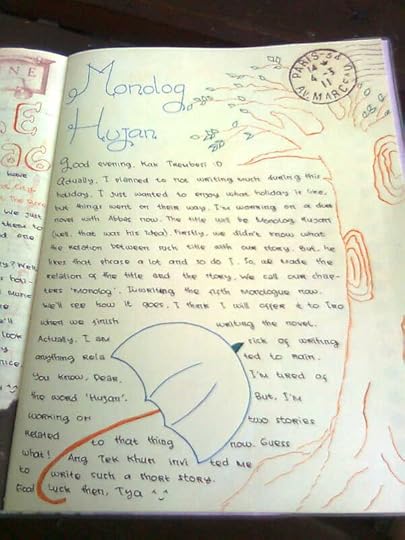 NE
E
have
We just
them to
d one
look
nice
Monolog
Hujan
PARIS-54
4-3
11
Good evening, Kak Treuberi :D
Actually, I planned to not writing much during this
holiday. I just wanted to enjoy what holiday it like,
but things went on their way. I'm working on a duet
novel with Abbas now. The title will be Monolog Hujan
(well, that was his idea). Firstly, we didn't know what
the relation between such title with our story. But, he
likes that phrase a lot and so do I. So, we made the
relation of the title and the story. We call our chap-
ters 'Monolog'. I'm writing the fifth Monologue now.
We'll see how it goes. I think I will offer it to Iro
when we finish writing the novel.
Actually, I am sick of writing
anything rela ted to rain.
You know, Dear, I'm tired of
the word 'Hujan'. But, I'm
working on two stories
related to that thing now. Guess
what! Ang Tek Khun invi ted me
to write such a short story.
Good Luck then, Tya ^_^